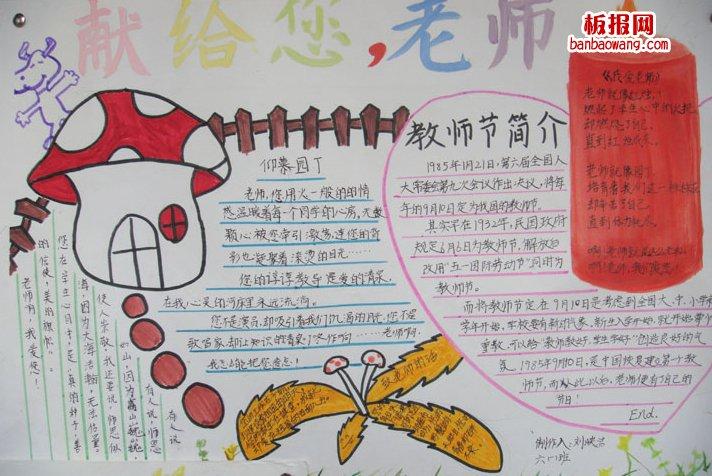 献给您，老师
板报网
banbaowang.com
仰慕园丁
老师，您用火一般的的情
感温暖着每一个同学的心房，无数
颗心被您牵引激荡，连您的背
影也凝聚着滚烫的目光……
您的谆谆教导是爱的清泉，
在我心灵的河床里永远流淌。
您不是演员，却吸引着我们饥渴的目光，您不是
歌唱家，却让知识的清泉叮咚作响……老师啊，
我怎么能把您忘怠！
有人说，师恩
如山，因为高山巍巍，
使人崇敬。我还要说，师恩似
海，因为大海浩瀚，无法估量。
您在学生心目中，是，真的种子，善
的信使，美的旗帜。
老师啊，我爱您！
教师节简介
1985年1月21日，第六届全国人
大常委会第九次会议作出决议，将每
年的9月10日定为我国的教师节。
其实早在1932年，民国政府
规定6月6日为教师节，解放后
改用“五一国际劳动节”同时为
教师节。
而将教师节定在9月10日是考虑到全国大、中、小学新
学年开始，学校要有新的气象，新生入学开始，就开始尊师
重教，可以给“教师教好，学生学好”创造良好的气
氛。1985年9月10日，是中国恢复建第一个教
师节，而从此以后，老师便有了自己的
节日！
End.
老师就像红烛，
燃起了学生心中的火把
却燃尽了自己，
直到
老师就像园丁，
培育着我们这一
却
直到体力耗尽。
敬老师的话
制作人：刘
六（1）班